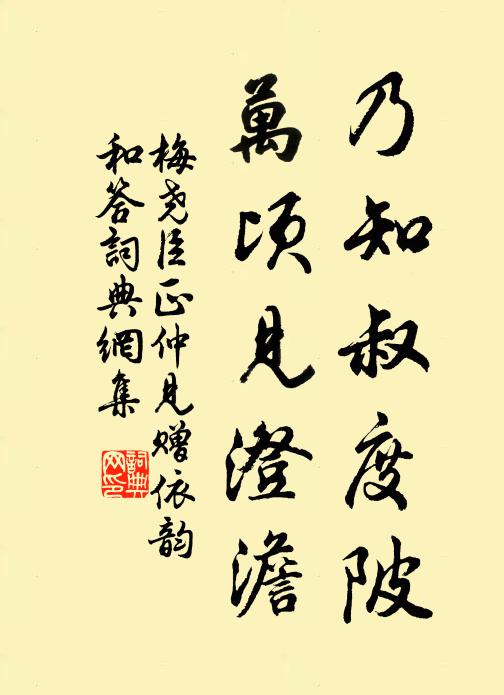 乃知叔度陂
萬頃見澄澹
梅堯臣正仲見贈依韵
和答詞典網集
詞典
网印